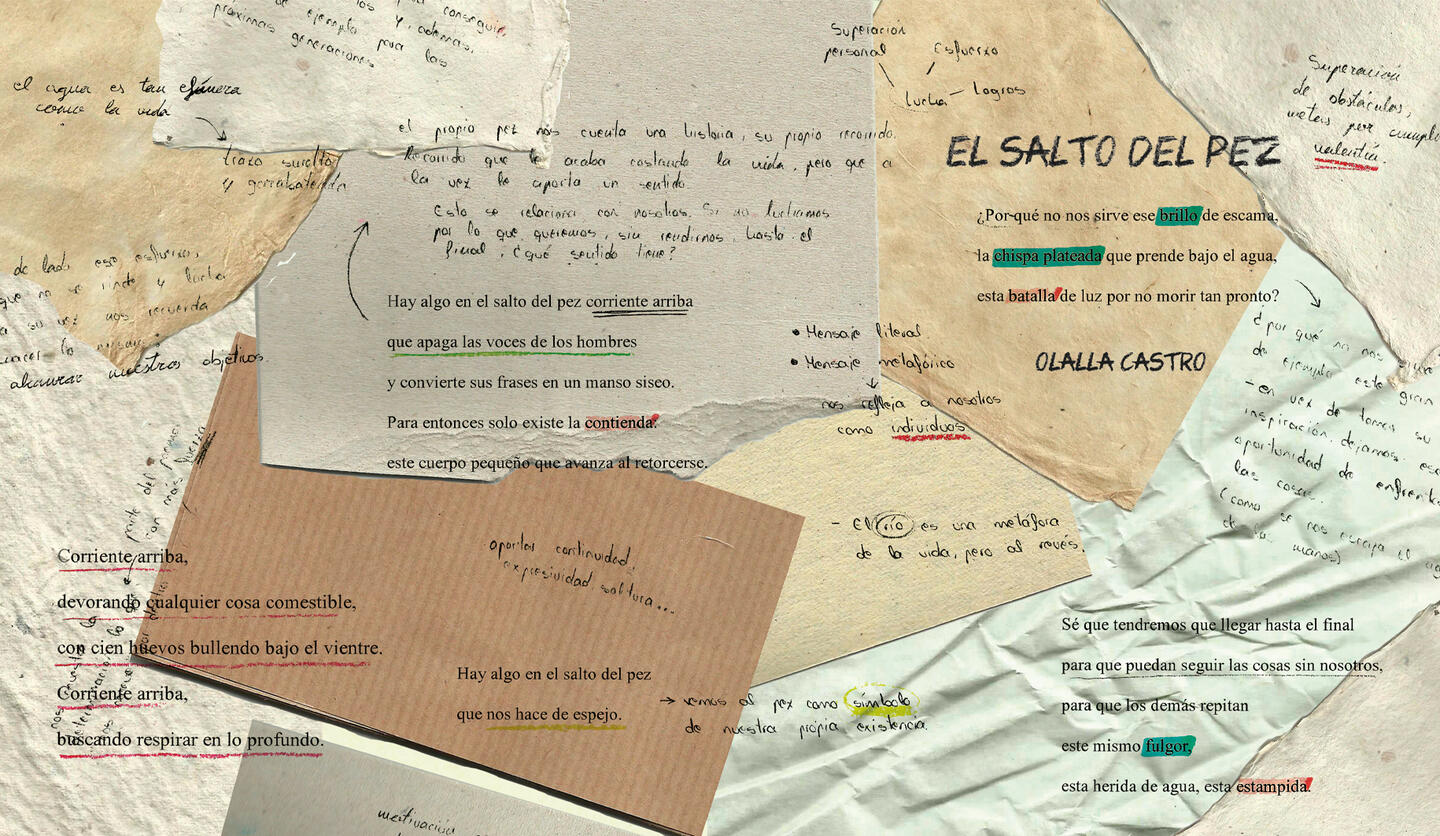 consegui
los y, además,
de ejemplo para las
próximas generaciones
el agua es tan efímera
como la vida
trazo suelto
y garrabateado
de lado ese esfuerzo,
que no se rinde y lucha
a su vez nos recuerda
alcanzar nuestros objetivos.
el propio pez nos cuenta una historia, su propio recorrido.
Recorrido que le acaba costando la vida, pero que a
la vez le aporta un sentido.
Esto se relaciona con nosotros. Si no luchamos
por lo que queremos, sin rendirnos, hasta el
final, ¿qué sentido tiene?
Hay algo en el salto del pez corriente arriba
que apaga las voces de los hombres
y convierte sus frases en un manso siseo.
Para entonces solo existe la contienda:
este cuerpo pequeño que avanza al retorcerse.
Superación
personal
Esfuerzo
Lucha – Logros
EL SALTO DEL PEZ
¿Por qué no nos sirve ese brillo de escama,
la chispa plateada que prende bajo el agua,
esta batalla de luz por no morir tan pronto?
OLALLA CASTRO
Superación
de obstáculos,
metas por cumplir
valentía.
• Mensaje literal
• Mensaje metafórico
nos refleja a nosotros
como individuos
¿por qué no nos sirve
de ejemplo este gran
– en vez de tomar su
inspiración, dejamos
oportunidad de
las cosas.
(como se nos escapa el
de las manos)
– El río es una metáfora
de la vida, pero al revés.
aportar continuidad,
expresividad, soltura...
parte del poema
con más fuerza
Corriente arriba,
devorando cualquier cosa comestible,
con cien huevos bullendo bajo el vientre.
Corriente arriba,
buscando respirar en lo profundo.
Hay algo en el salto del pez
que nos hace de espejo.
→ vemos al pez como símbolo
de nuestra propia existencia.
Sé que tendremos que llegar hasta el final
para que puedan seguir las cosas sin nosotros,
para que los demás repitan
este mismo fulgor,
esta herida de agua, esta estampida.
motivación